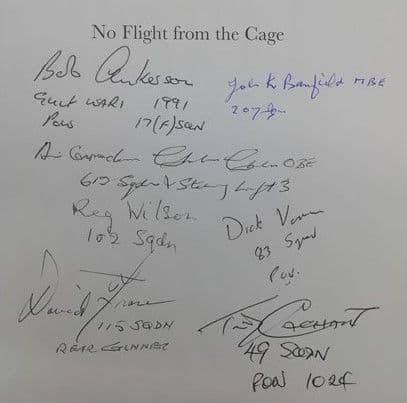 No Flight from the Cage
Bob Ankerson
GULF WAR 1 1991
POW 17(F) SQN
John K Banfield MBE
207 Sqn
Air Commodore Charles Clarke OBE
619 Sqdn & Stalag Luft 3
Reg Wilson
102 Sqdn
Dick
83 Sqad
POW.
David Fraser
115 SQDN
REAR GUNNER
CACHART
49 SQDN
POW 1024